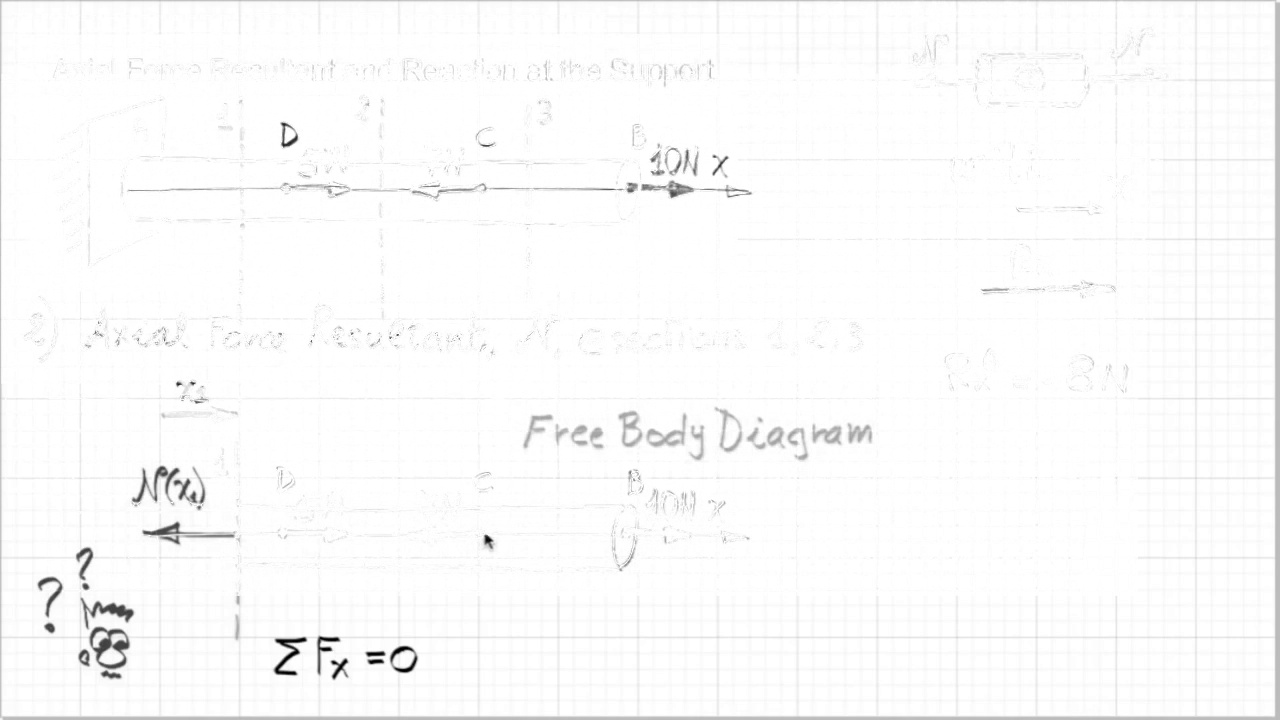 Axial Force Resultant and Reaction at the Support
N N
1 2 3
D C B
5N 10N x
2) Axial Force Resultant, N, @sections 1,2,3
x1
Free Body Diagram
1 D C B
N(x1) 10N x
? ?
ΣFx =0